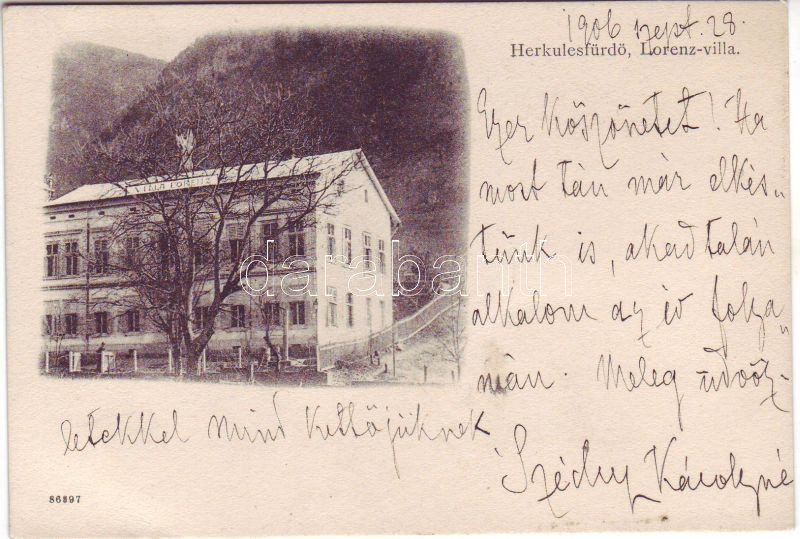 1906 szept. 28.
Herkulesfürdő, Lorenz-villa.
VILLA LORENZ
Ezer köszönetet! Ha
most tán már elkés„
tünk is, akad talán
alkalom az év folya„
mán. Meleg üdvöz„
letekkel mind kettőjüknek
Széchy Károlyné
darabanth
86897